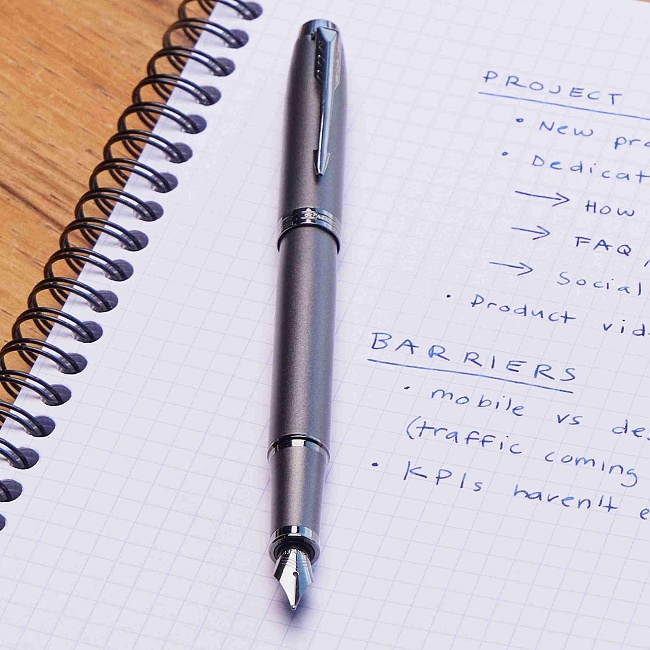 PROJECT
• New pro
• Dedicat
→ How
→ FAQ /
→ Social
• Product vid
BARRIERS
• mobile vs des
(traffic coming
• KPIs haven't e